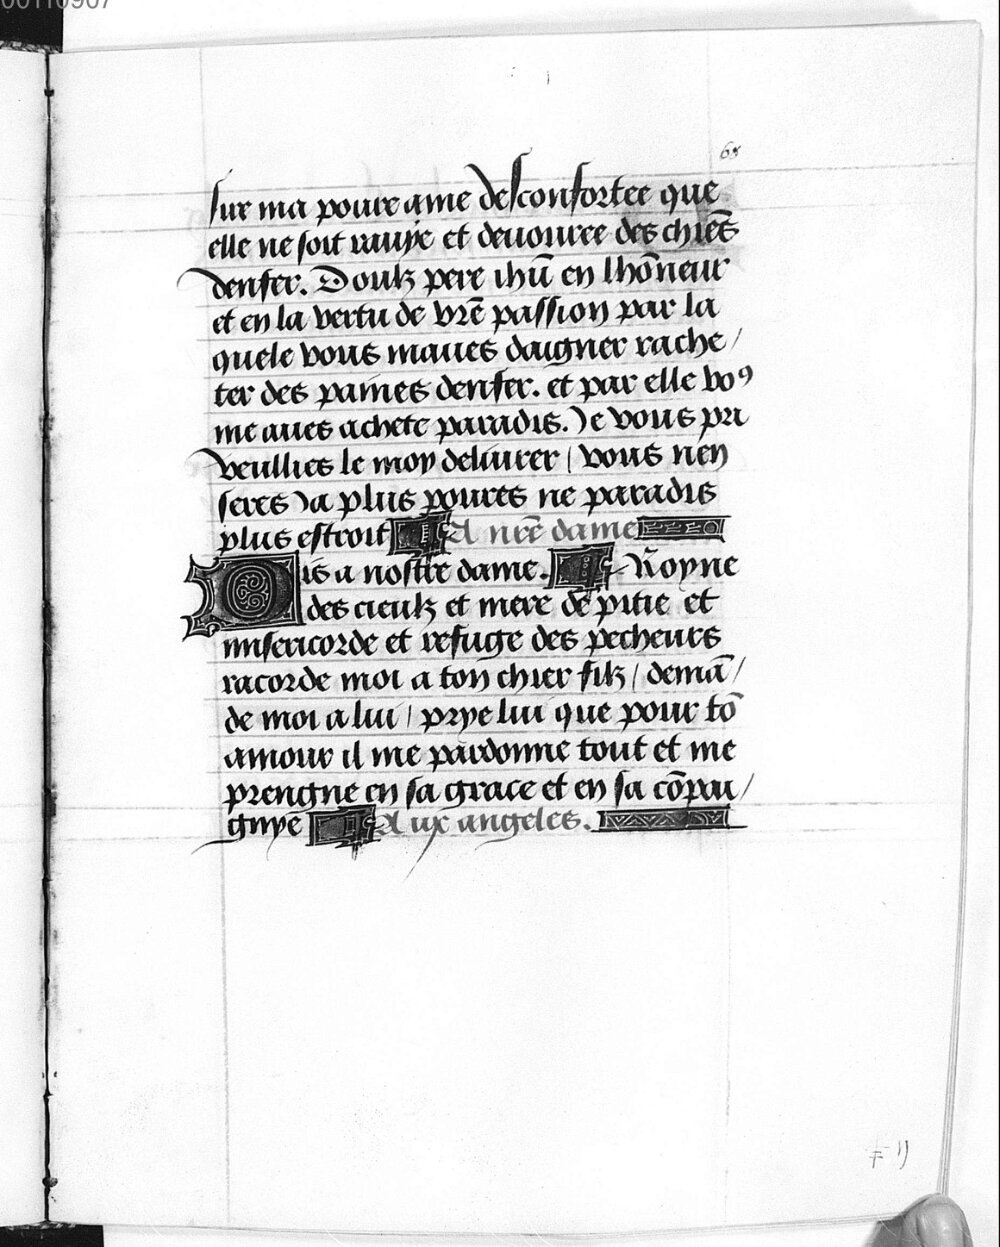 00110907
68
sur ma poure ame desconfortee que
elle ne soit rauye et deuouree des chiēs
denfer. Doulz pere ihū en lhōneur
et en la vertu de vrē passion par la
quele vous maues daigner rache/
ter des paines denfer. et par elle voꝯ
me aues achete paradis. Je vous pri
veullies le moy deliurer / vous nen
seres Ja plus poures ne paradis
plus estroit A nrē dame
Dis a nostre dame. Royne
des cieulz et mere de pitie et
misericorde et refuge des pecheurs
racorde moi a ton chier filz / demā/
de moi a lui / prye lui que pour tō
amour il me pardonne tout et me
prengne en sa grace et en sa cōpai/
gnye Aux angeles.